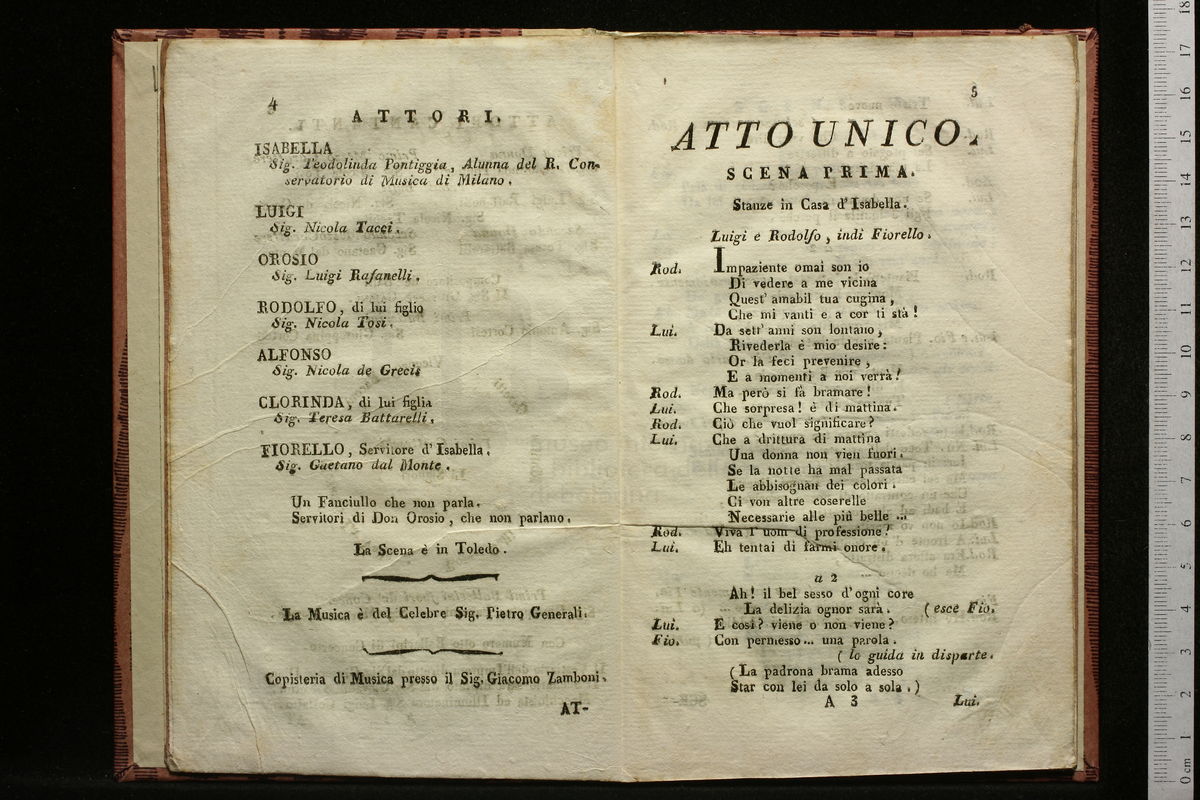 4
ATTORI.
ISABELLA
Sig. Teodolinda Pontiggia, Alunna del R. Con-
servatorio di Musica di Milano.
LUIGI
Sig. Nicola Tacci.
OROSIO
Sig. Luigi Rafanelli.
RODOLFO, di lui figlio
Sig. Nicola Tosi.
ALFONSO
Sig. Nicola de Grecis
CLORINDA, di lui figlia
Sig. Teresa Battarelli.
FIORELLO, Servitore d'Isabella.
Sig. Gaetano dal Monte.
Un Fanciullo che non parla.
Servitori di Don Orosio, che non parlano.
La Scena è in Toledo.
La Musica è del Celebre Sig. Pietro Generali.
Copisteria di Musica presso il Sig. Giacomo Zamboni.
AT-
5
ATTO UNICO.
SCENA PRIMA.
Stanze in Casa d'Isabella.
Luigi e Rodolfo, indi Fiorello.
Rod. Impaziente omai son io
Di vedere a me vicina
Quest' amabil tua cugina,
Che mi vanti e a cor ti stà!
Lui. Da sett' anni son lontano,
Rivederla è mio desire:
Or la feci prevenire,
E a momenti a noi verrà!
Rod. Ma però si fà bramare!
Lui. Che sorpresa! è di mattina.
Rod. Ciò che vuol significare?
Lui. Che a drittura di mattina
Una donna non vien fuori.
Se la notte ha mal passata
Le abbisognan dei colori.
Ci von altre coserelle
Necessarie alle più belle ...
Rod. Viva l' uom di professione!
Lui. Eh tentai di farmi onore.
a 2
Ah! il bel sesso d'ogni core
La delizia ognor sarà. (esce Fio.
Lui. E così? viene o non viene?
Fio. Con permesso... una parola.
(lo guida in disparte.
(La padrona brama adesso
Star con lei da solo a sola.)
A 3
Lui.
0 cm 1 2 3 4 5 6 7 8 9 10 11 12 13 14 15 16 17 18